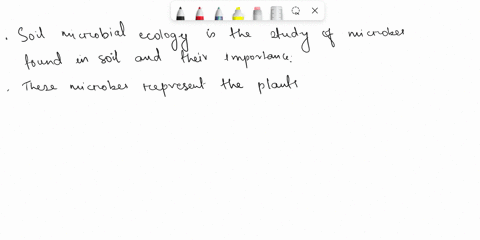 . Soil microbial ecology is the study of microbes
found in soil and their importance.
. These microbes represent the plants